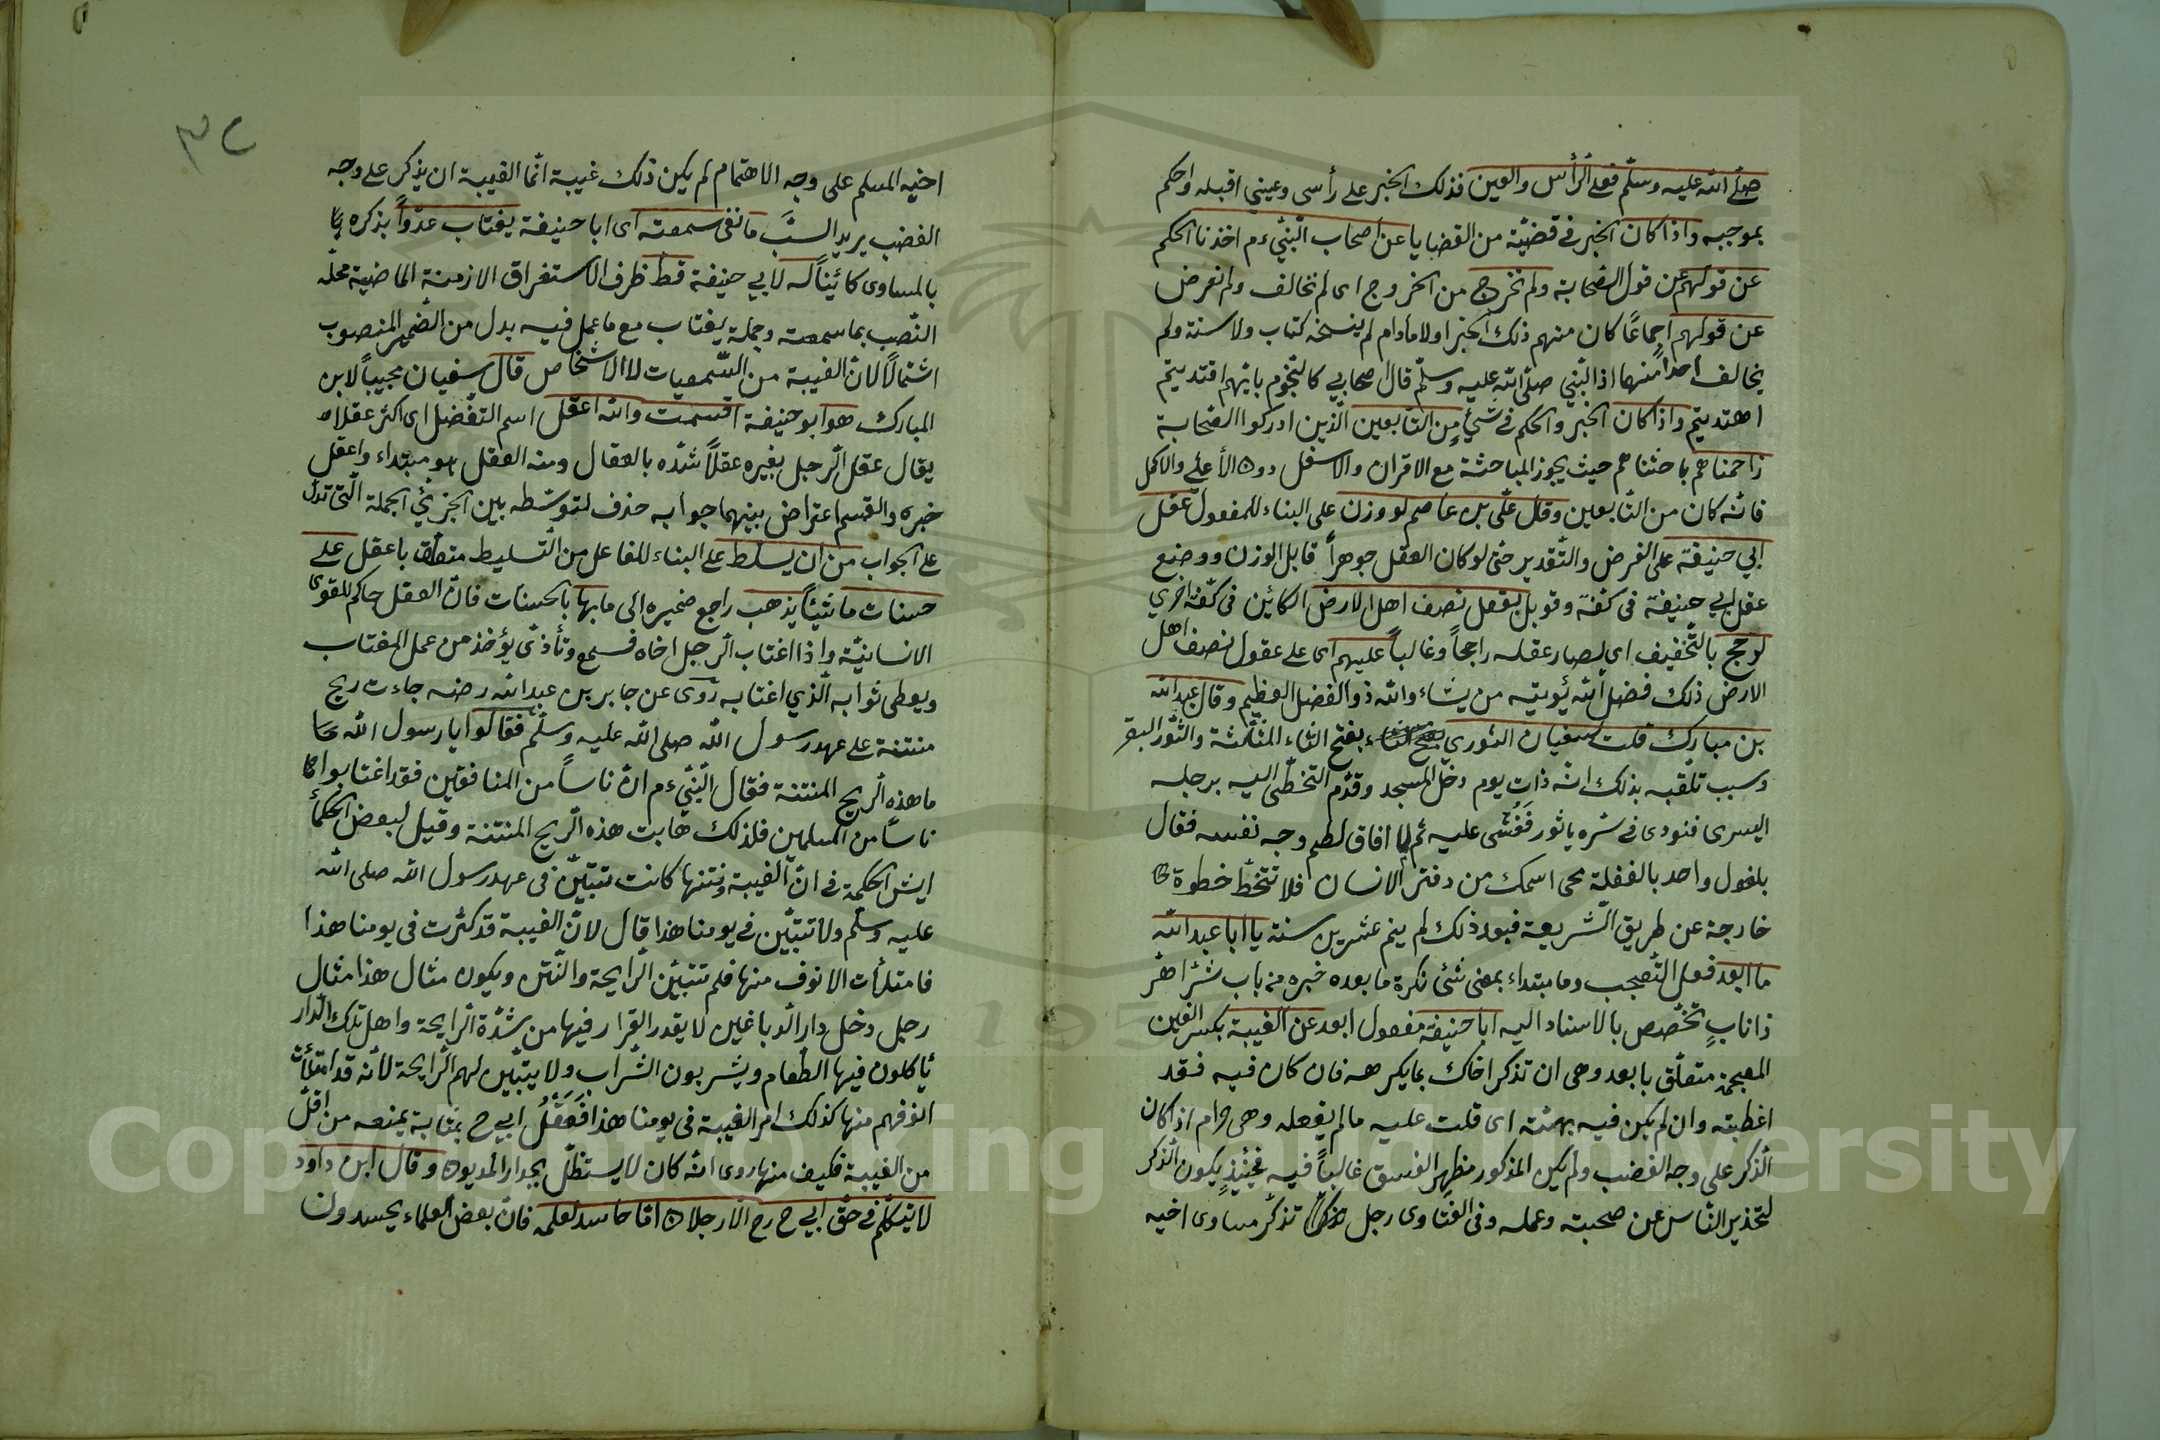 صلّى الله عليه وسلّم فعلى الرأس والعين فذلك الخبر على رأسى وعيني اقبله واحكم
بموجبه واذا كان الخبر فى قضيّة من القضايا عن اصحاب النّبيّ ءم اخذنا الحكم
عن قولهم عن قول الصّحابة ولم نخرج من الخروج اى لم نخالف ولم نعرض
عن قولهم اجماعًا كان منهم ذلك الخبر اولا مادام لم ينسخه كتاب ولا سنة ولم
يخالف احدًا منهما اذ النّبي صلّى الله عليه وسلّم قال اصحابي كالنّجوم بايّهم اقتديتم
اهتديتم واذا كان الخبر والحكم فى شيئ من التّابعين الّذين ادركوا الصّحابة
زاحمناهم باحثناهم حيث يجوز المباحثة مع الاقران والاسفل دون الأعلى والاكمل
فانّه كان من التّابعين وقال علىّ بن عاصم لو وزن على البناء للمفعول عقل
ابي حنيفة على الفرض والتّقدير حتى لو كان العقل جوهراً قابل الوزن ووضع
عقل ابي حنيفة فى كفّة وقوبل بعقل نصف اهل الارض الكائن فى كفّة اخرى
لرجح بالتّخفيف اى لصار عقله راجحاً وغالباً عليهم اى على عقول نصف اهل
الارض ذلك فضل الله يؤتيه من يشاء والله ذو الفضل العظيم وقال عبد الله
بن مبارك قلت لسفيان الثوري بفتح الثاء المثلّثة والثّور البقر
وسبب تلقّبه بذلك انّه ذات يوم دخل المسجد وقدّم التخطّى اليه برجله
اليسرى فنودى فى سرّه يا ثور فغُشى عليه ثم لما افاق لطم وجه نفسه فقال
بلغول واحد بالغفلة محى اسمك من دفتر الانسان فلا تتخطّ خطوة
خارجة عن طريق الشّريعة فبعد ذلك لم ينم عشرين سنة يا ابا عبد الله
ما ابعد فعل التّعجب وما مبتداء بمعنى شئ نكرة ما بعده خبره من باب شرّ اهرّ
ذا نابٍ تخصّص بالاسناد اليه ابا حنيفة مفعول ابعد عن الغيبة بكسر الغين
المعجمة متعلّق بابعد وهى ان تذكر اخاك بما يكرهه فان كان فيه فقد
اغتبته وان لم يكن فيه بهتّه اى قلت عليه ما لم يفعله وهى حرام اذا كان
الذّكر على وجه الغضب ولم يكن المذكور مظهر الفسق غالباً فيه فحينئذٍ يكون الذّكر
لتحذير النّاس عن صحبته وعمله وفى الفتاوى رجل تذكّر مساوى اخيه
٣٢
اخيه المسلم على وجه الاهتمام لم يكن ذلك غيبة انّما الغيبة ان يذكر على وجه
الغضب يريد السبّ ما نفى سمعته اى ابا حنيفة يغتاب عدوّاً يذكره
بالمساوى كائنًا له لابي حنيفة قطّ ظرف لاستغراق الازمنة الماضية محلّه
النّصب بما سمعته وجملة يغتاب مع ما عمل فيه بدل من الضمير المنصوب
اشتمالًا لانّ الغيبة من السّمعيات لا الاشخاص قال سفيان مجيباً لابن
المبارك هو ابو حنيفة اقسمت والله اعقل اسم التفضيل اى اكثر عقلا
يقال عقل الرجل بعيره عقلاً شدّه بالعقال ومنه العقل هو مبتداء واعقل
خبره والقسم اعتراض بينهما جوابه حذف لتوسّطه بين الجزئي الجملة الّتى تدلّ
على الجواب من ان يسلّط على البناء للفاعل من التّسليط متعلّق باعقل على
حسنات ما شيئاً يذهب راجع ضميره الى ما بها بالحسنات فانّ العقل حاكم للقوى
الانسانيّة واذا اغتاب الرجل اخاه فسمع وتأذّى يؤخذ من عمل المغتاب
ويعطى ثوابه الّذي اغتابه روى عن جابر بن عبد الله رضه جاءت ريح
منتنة على عهد رسول الله صلى الله عليه وسلّم فقالوا يا رسول الله
ما هذه الريح المنتنة فقال النّبيّ ءم انّ ناساً من المنافقين فقد اغتابوا
ناساً من المسلمين فلذلك هابت هذه الريح المنتنة وقيل لبعض الحكماء
ايش الحكمة فى انّ الغيبة ونتنها كانت تتبيّن فى عهد رسول الله صلى الله
عليه وسلّم ولا تتبيّن فى يومنا هذا قال لانّ الغيبة قد كثرت فى يومنا هذا
فامتلأت الانوف منها فلم تتبيّن الرايحة والنّتن ويكون مثال هذا مثال
رجل دخل دار الدباغين لا يقدر القرار فيها من شدّة الرايحة واهل تلك الدار
يأكلون فيها الطّعام ويشربون الشّراب ولا يتبيّن لهم الرّايحة لانّه قد امتلأت
انوفهم منها كذلك امر الغيبة فى يومنا هذا فعقلُ ابي ح بمثابة يمنعه من اقلّ
من الغيبة فكيف منها روى انّه كان لا يستظلّ بجدار المديون وقال ابن داود
لا يتكلّم فى حقّ ابي ح رح الا رجلان امّا حاسد لعلمه فانّ بعض العلماء يحسدون
Copyright © King Saud University